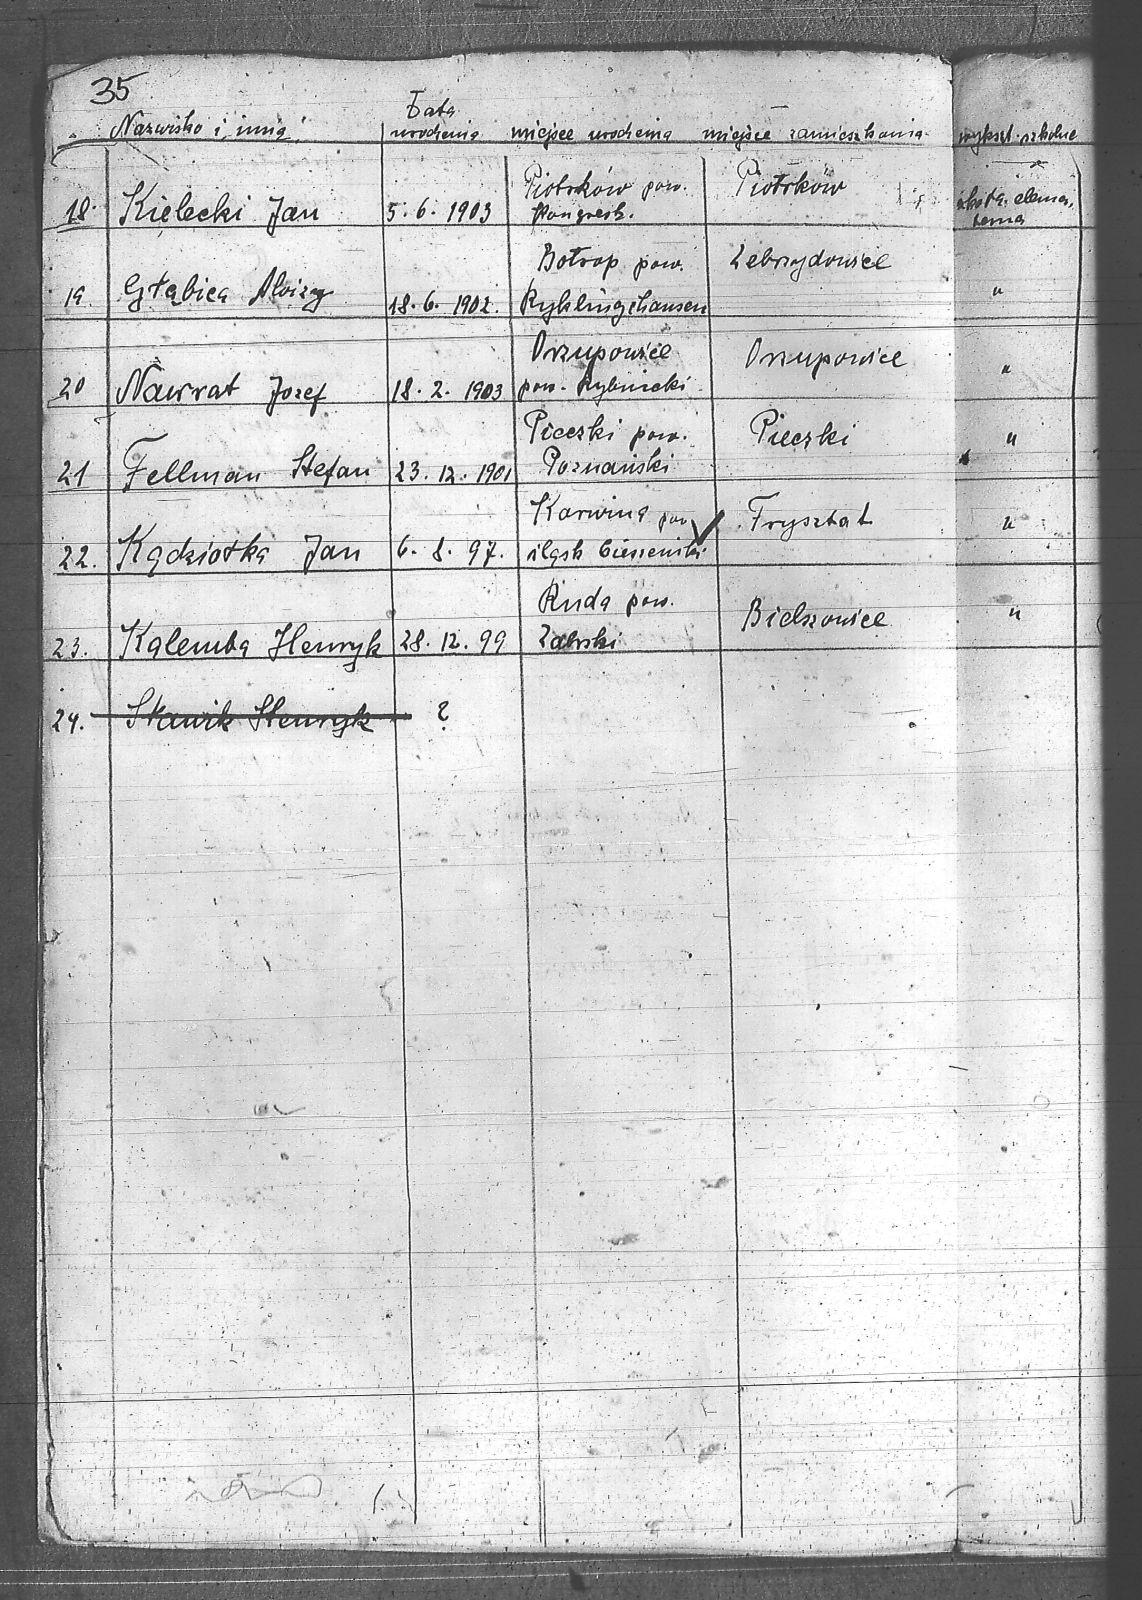 35
Data
Nazwisko i imię urodzenia miejsce urodzenia miejsce zamieszkania wykszt. szkolne
Piotrków pow. Piotrków
18. Kielecki Jan 5. 6. 1903 Kongresk. szkoła elemen.
tarna
Botrop pow. Zebrzydowice
19. Głąbica Aloizy 18. 6. 1902. Ryklingshausen "
Orzupowice Orzupowice
20 Nawrat Jozef 18. 2. 1903 pow. Rybnicki "
Pieczki pow. Pieczki "
21 Fellman Stefan 23. 12. 1901 Poznański
Karwina pow. Frysztat "
22. Kądziołka Jan 6. 8. 97. śląsk Cieszeński
Ruda pow. Bielszowice "
23. Kalemba Henryk 28. 12. 99 Zabrski
24. Sławik Henryk ?